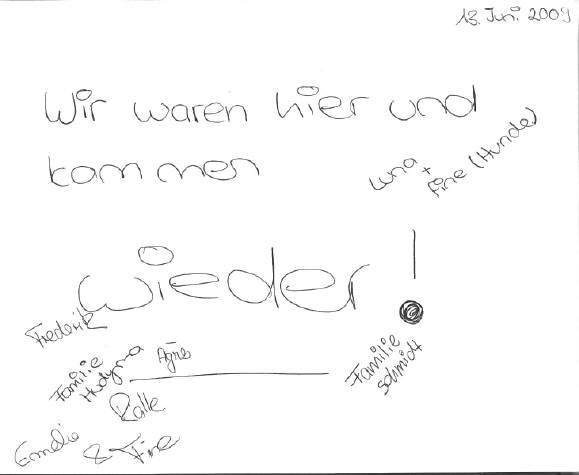 13. Juni 2009
Wir waren hier und
kommen
Luna
+
Fine (Hunde)
wieder!
Frederik
Familie
Hudyma
Agnes
Familie
Schmidt
Kalle
Emelie
& Fine